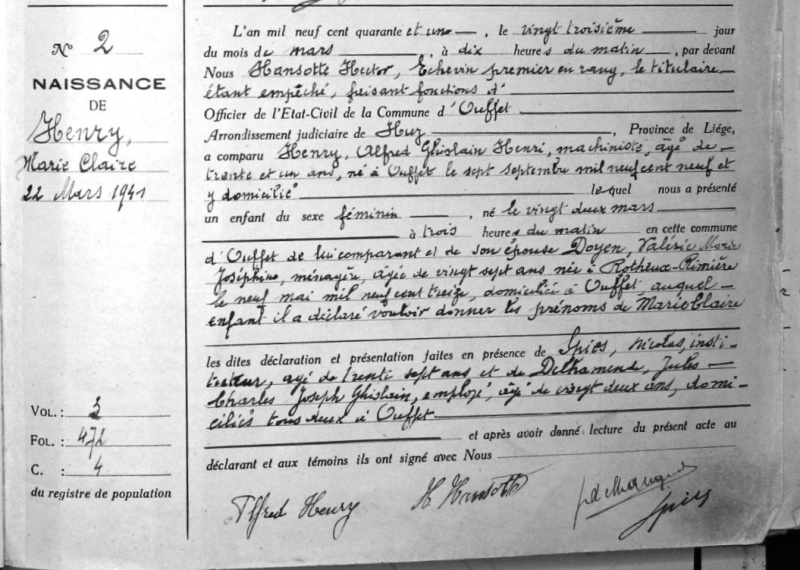 N° 2
NAISSANCE
DE
Henry,
Marie Claire
22 Mars 1941
VOL. : 3
FOL. : 472
C. : 4
du registre de population
L'an mil neuf cent quarante et une, le vingt troisième jour
du mois de mars, à dix heures du matin, par devant
Nous Hansotte Hector, Echevin premier en rang, le titulaire
étant empêché, faisant fonctions d'
Officier de l'Etat-Civil de la Commune d'Ouffet
Arrondissement judiciaire de Huy, Province de Liége,
a comparu Henry, Alfred Ghislain Henri, machiniste, âgé de
trente et un ans, né à Ouffet le sept septembre mil neuf cent neuf et
y domicilié lequel nous a présenté
un enfant du sexe féminin, né le vingt deux mars
à trois heures du matin en cette commune
d'Ouffet de lui comparant et de son épouse Doyen, Valérie Marie
Joséphine, ménagère, âgée de vingt sept ans née à Rotheux-Rimière
le neuf mai mil neuf cent treize, domiciliée à Ouffet auquel
enfant il a déclaré vouloir donner les prénoms de Marie Claire
les dites déclaration et présentation faites en présence de Spies, Nicolas, insti-
tuteur, âgé de trente sept ans et de Jules
Charles Joseph Ghislain, employé, âgé de vingt deux ans, domi-
ciliés tous deux à Ouffet
et après avoir donné lecture du présent acte au
déclarant et aux témoins ils ont signé avec Nous
Alfred Henry H. Hansotte
Spies